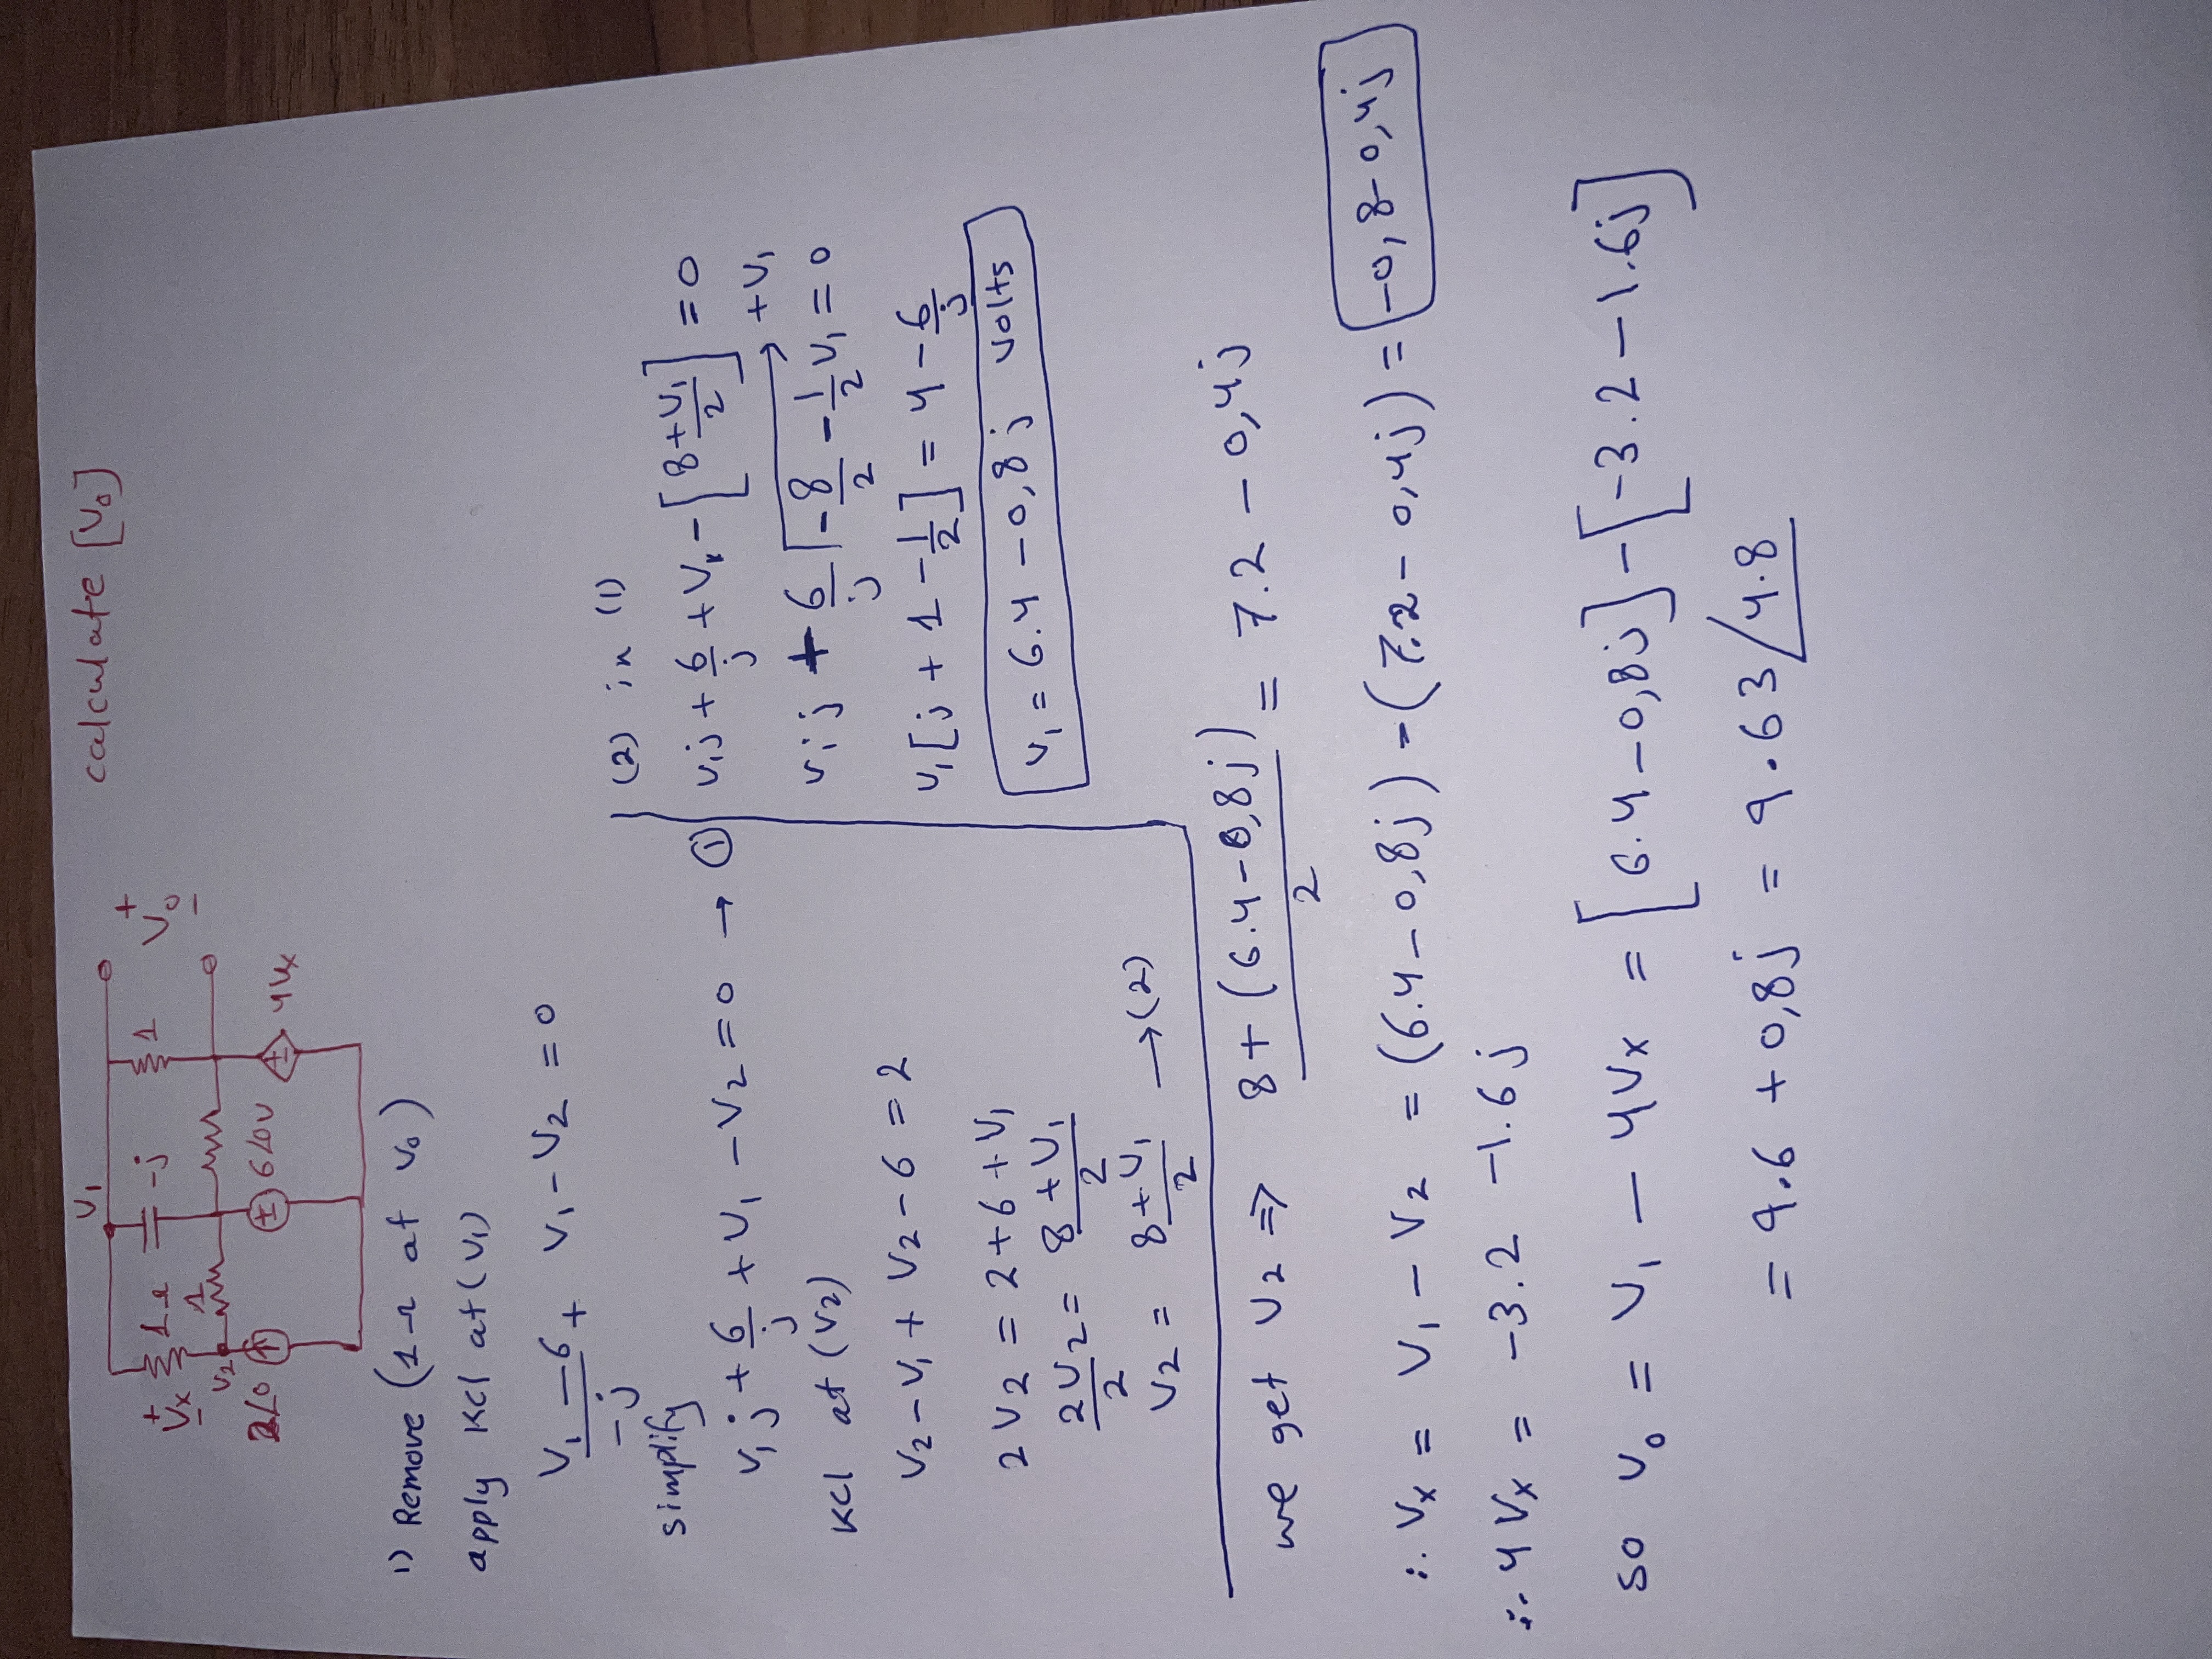 calculate [V₀]
V₁
+ Vx -
1Ω
-j
1
+ V₀ -
V₂
1
2∠0
6∠0V
4Vx
1) Remove (1Ω at V₀)
apply KCl at (V₁)
(V₁ - 6)/(-j) + V₁ - V₂ = 0
simplify
V₁j + 6/j + V₁ - V₂ = 0 → ①
KCl at (V₂)
V₂ - V₁ + V₂ - 6 = 2
2V₂ = 2 + 6 + V₁
2V₂/2 = (8 + V₁)/2
V₂ = (8 + V₁)/2 → (2)
(2) in (1)
V₁j + 6/j + V₁ - [(8 + V₁)/2] = 0
V₁j + 6/j - 8/2 - 1/2 V₁ = 0 + V₁
V₁[j + 1 - 1/2] = 4 - 6/j
V₁ = 6.4 - 0,8j volts
we get V₂ ⇒ (8 + (6.4 - 0,8j))/2 = 7.2 - 0,4j
∴ Vx = V₁ - V₂ = (6.4 - 0,8j) - (7.2 - 0,4j) = -0,8 - 0,4j
∴ 4Vx = -3.2 - 1.6j
so V₀ = V₁ - 4Vx = [6.4 - 0,8j] - [-3.2 - 1.6j]
= 9.6 + 0,8j = 9.63∠4.8